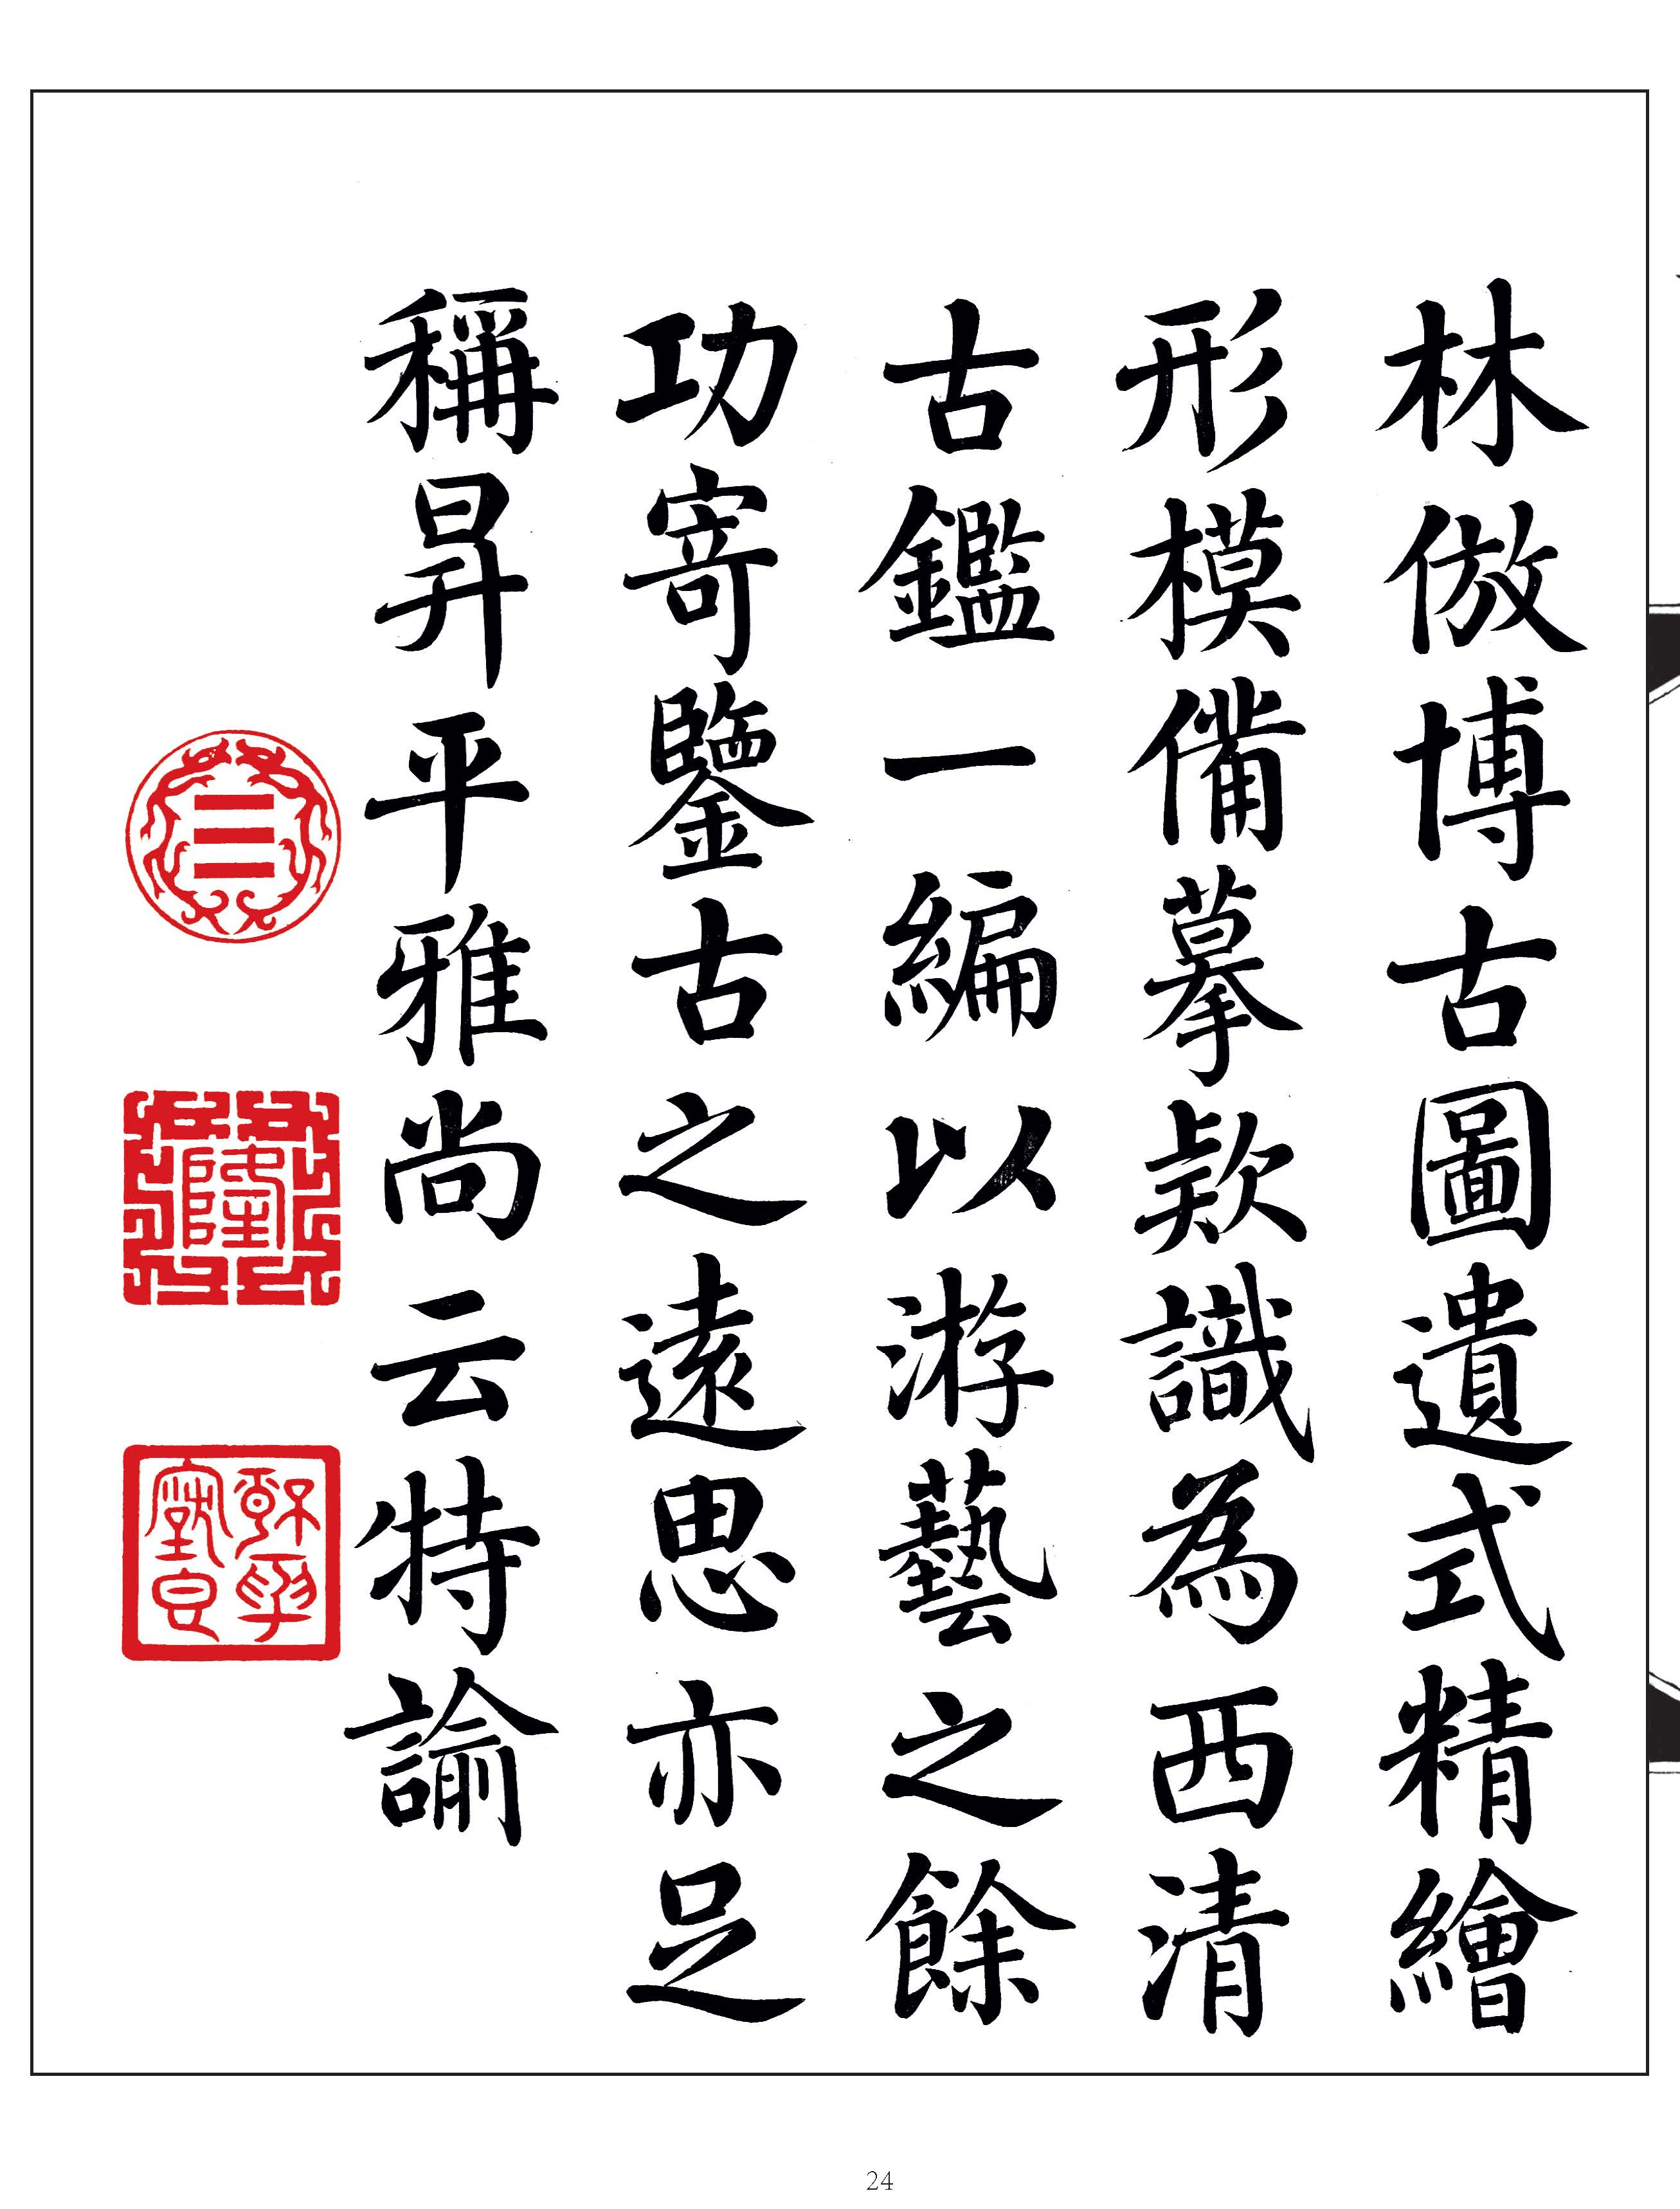 林倣博古圖遺式精繪
形模備摹款識為西清
古鑑一編以游藝之餘
功寄鑒古之遠思亦足
稱昇平雅尚云特諭
24